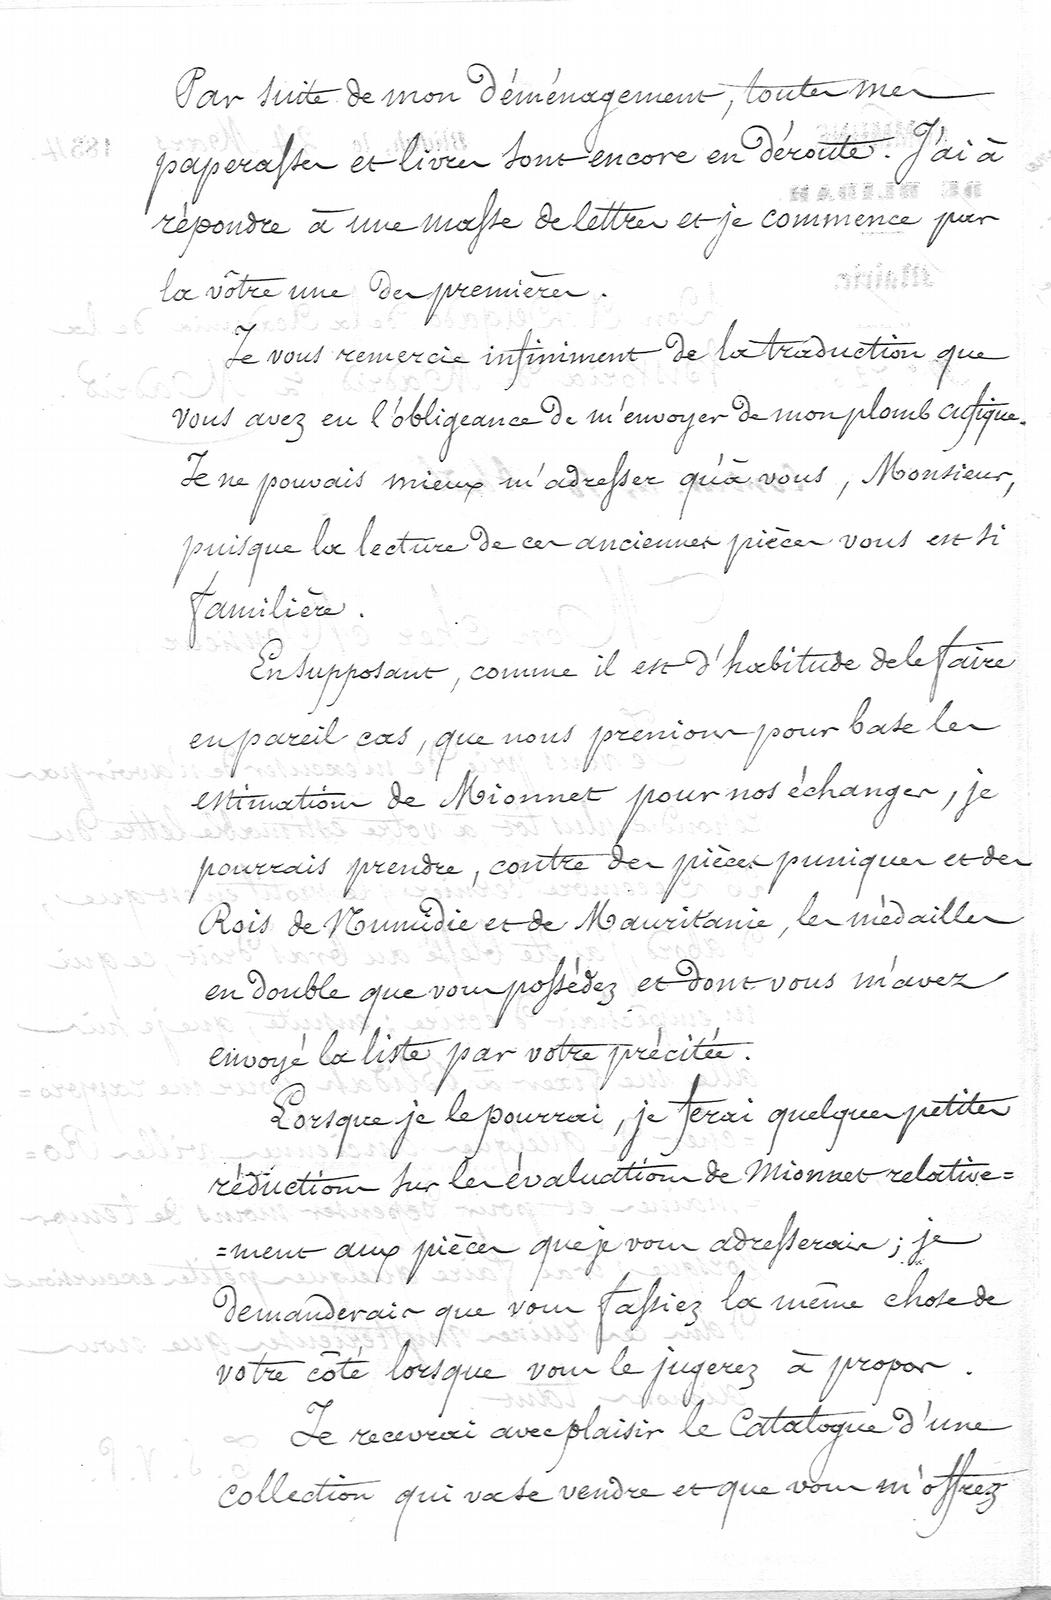 Par suite de mon déménagement, toutes mes
paperasses et livres sont encore en déroute. J'ai à
répondre à une masse de lettres et je commence par
la vôtre une des premières.
Je vous remercie infiniment de la traduction que
vous avez eu l'obligeance de m'envoyer de mon plomb cufique.
Je ne pouvais mieux m'adresser qu'à vous, Monsieur,
puisque la lecture de ces anciennes pièces vous est si
familière.
En supposant, comme il est d'habitude de le faire
en pareil cas, que nous prenions pour base les
estimations de Mionnet pour nos échanges, je
pourrais prendre, contre des pièces puniques et des
Rois de Numidie et de Mauritanie, les médailles
en double que vous possédez et dont vous m'avez
envoyé la liste par votre précitée.
Lorsque je le pourrai, je ferai quelques petites
réductions sur les évaluations de Mionnet relative=
=ment aux pièces que je vous adresserais; je
demanderais que vous fassiez la même chose de
votre côté lorsque vous le jugerez à propos.
Je recevrai avec plaisir le Catalogue d'une
collection qui va se vendre et que vous m'offrez